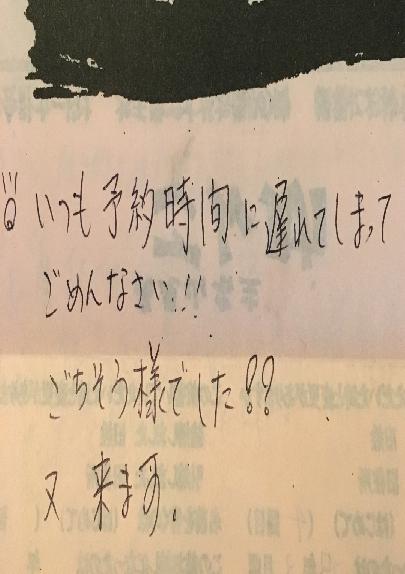 いつも予約時間に遅れてしまって
ごめんなさい!!
ごちそう様でした!!
又来ます。